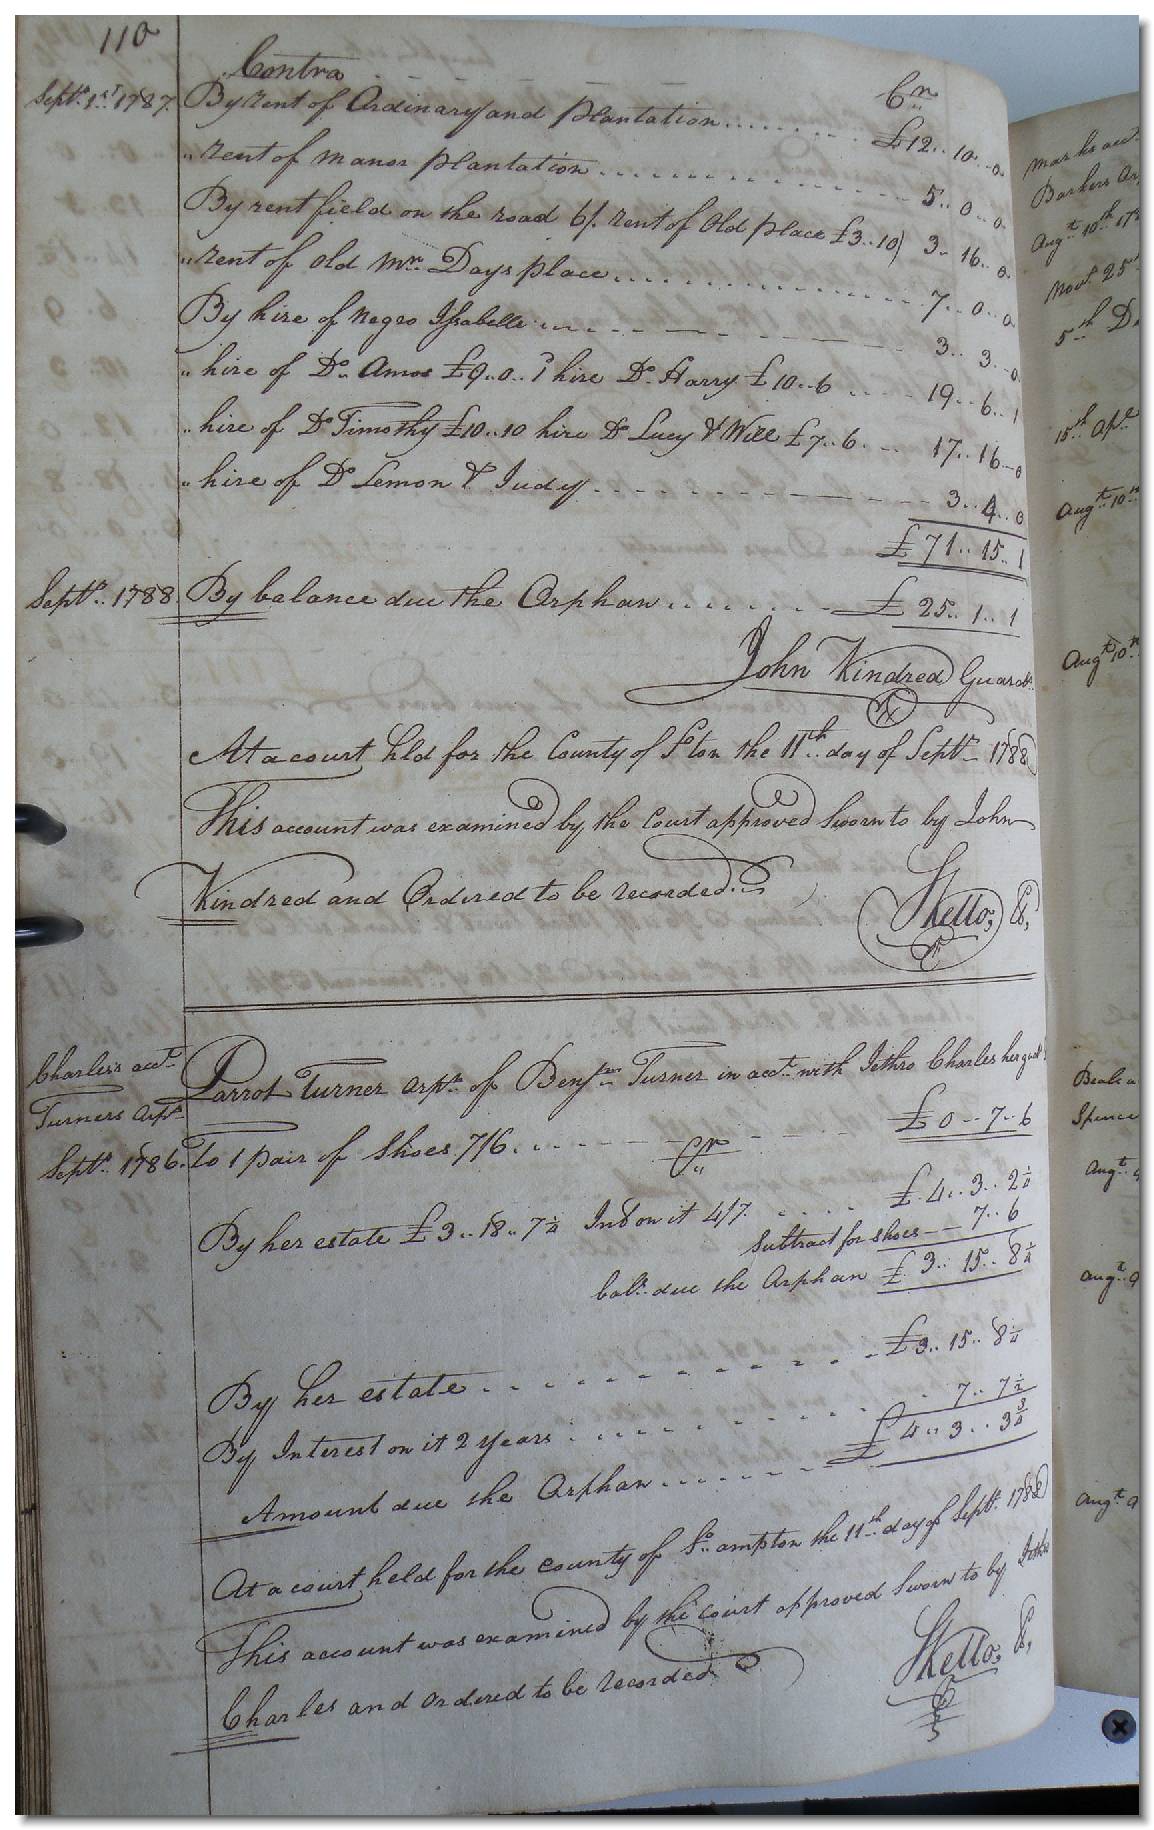 110
Contra Cr
Septr. 1st 1787. By rent of Ordinary and plantation £12..10..0
" rent of manor plantation 5..0..0
By rent field on the road 6/. rent of Old place £3..10) 3..16..0
" rent of old Mr. Days place 7..0..0
By hire of Negro Issabelle 3..3..0
" hire of Do. Amos £9..0..1 hire Do. Harry £10..6 19..6..1
" hire of Do Timothy £10..10 hire Do Lucy & Will £7..6. 17..16..0
" hire of Do Lemon & Judy 3..4..0
£71..15..1
Septr. 1788 By balance due the Orphan £25..1..1
John Kindred Guardn.
At a court held for the County of So ton the 11th day of Septr 1788
This account was examined by the Court approved Sworn to by John
Kindred and Ordered to be recorded.
Skello;
Charles's acct. Parrot Turner orpt. of Benjn. Turner in acct. with Jethro Charles her guard.
Turners Orpt £0..7..6
Septr. 1786. To 1 pair of Shoes 7/6.
Cr
By her estate £3..18..7¼ Int on it 4/7. £4..3..2¼
Subtract for shoes 7..6
bale. due the Orphan £3..15..8¼
By her estate £3..15..8¼
By Interest on it 2 years 7..7½
Amount due the Orphan £4..3..3¾
At a court held for the county of So. ampton the 11th day of Septr. 1788
This account was examined by the court approved Sworn to by Jethro
Charles and ordered to be recorded
Skello.
marks acct.
Barkers
Augt. 10th
Novr. 25
5th
15th Apl
Augt. 10
Augt 10
Beale
Spence
Augt.
augt. 9
Augt. 9